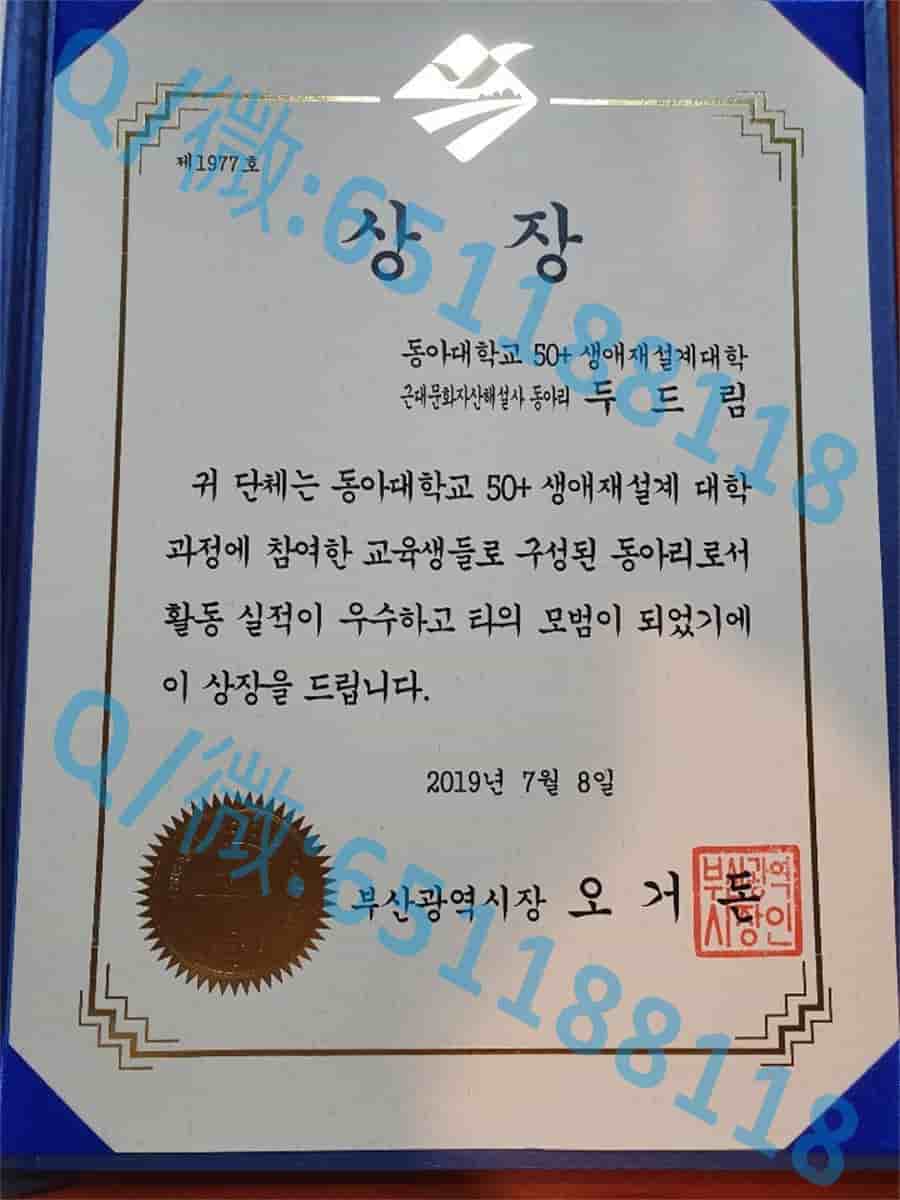 제1977호
상 장
동아대학교 50+ 생애재설계대학
근대문화자산해설사 동아리 두 드 림
귀 단체는 동아대학교 50+ 생애재설계 대학
과정에 참여한 교육생들로 구성된 동아리로서
활동 실적이 우수하고 타의 모범이 되었기에
이 상장을 드립니다.
2019년 7월 8일
부산광역시장 오 거 돈
부산광역
시장인
Q/微:651188118
Q/微:651188118